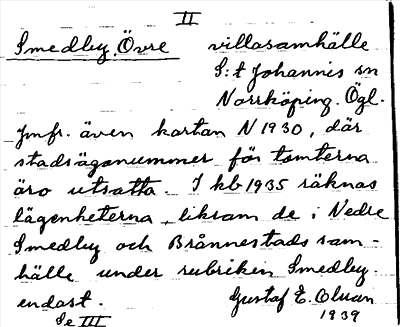 II
Smedby, Övre villasamhälle
S:t Johannis sn
Norrköping. Ögl.
Jmfr. även kartan N 1930, där
stadsäganummer för tomterna
äro utsatta. I kb 1935 räknas
lägenheterna, liksom de i Nedre
Smedby och Brånnestads sam-
hälle under rubriken Smedby
endast. Gustaf E.
Se III 1939